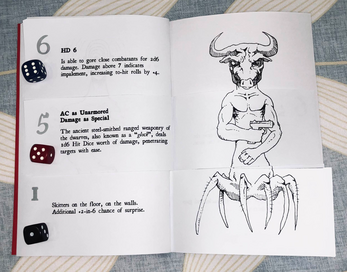 6
HD 6
Is able to gore close combatants for 2d6
damage. Damage above 7 indicates
impalement, increasing to-hit rolls by +4.
5
AC as Unarmored
Damage as Special
The ancient steel-smithed ranged weaponry of
the dwarves, also known as a "glock", deals
2d6 Hit Dice worth of damage, penetrating
targets with ease.
1
Skitters on the floor, on the walls.
Additional +2-in-6 chance of surprise.